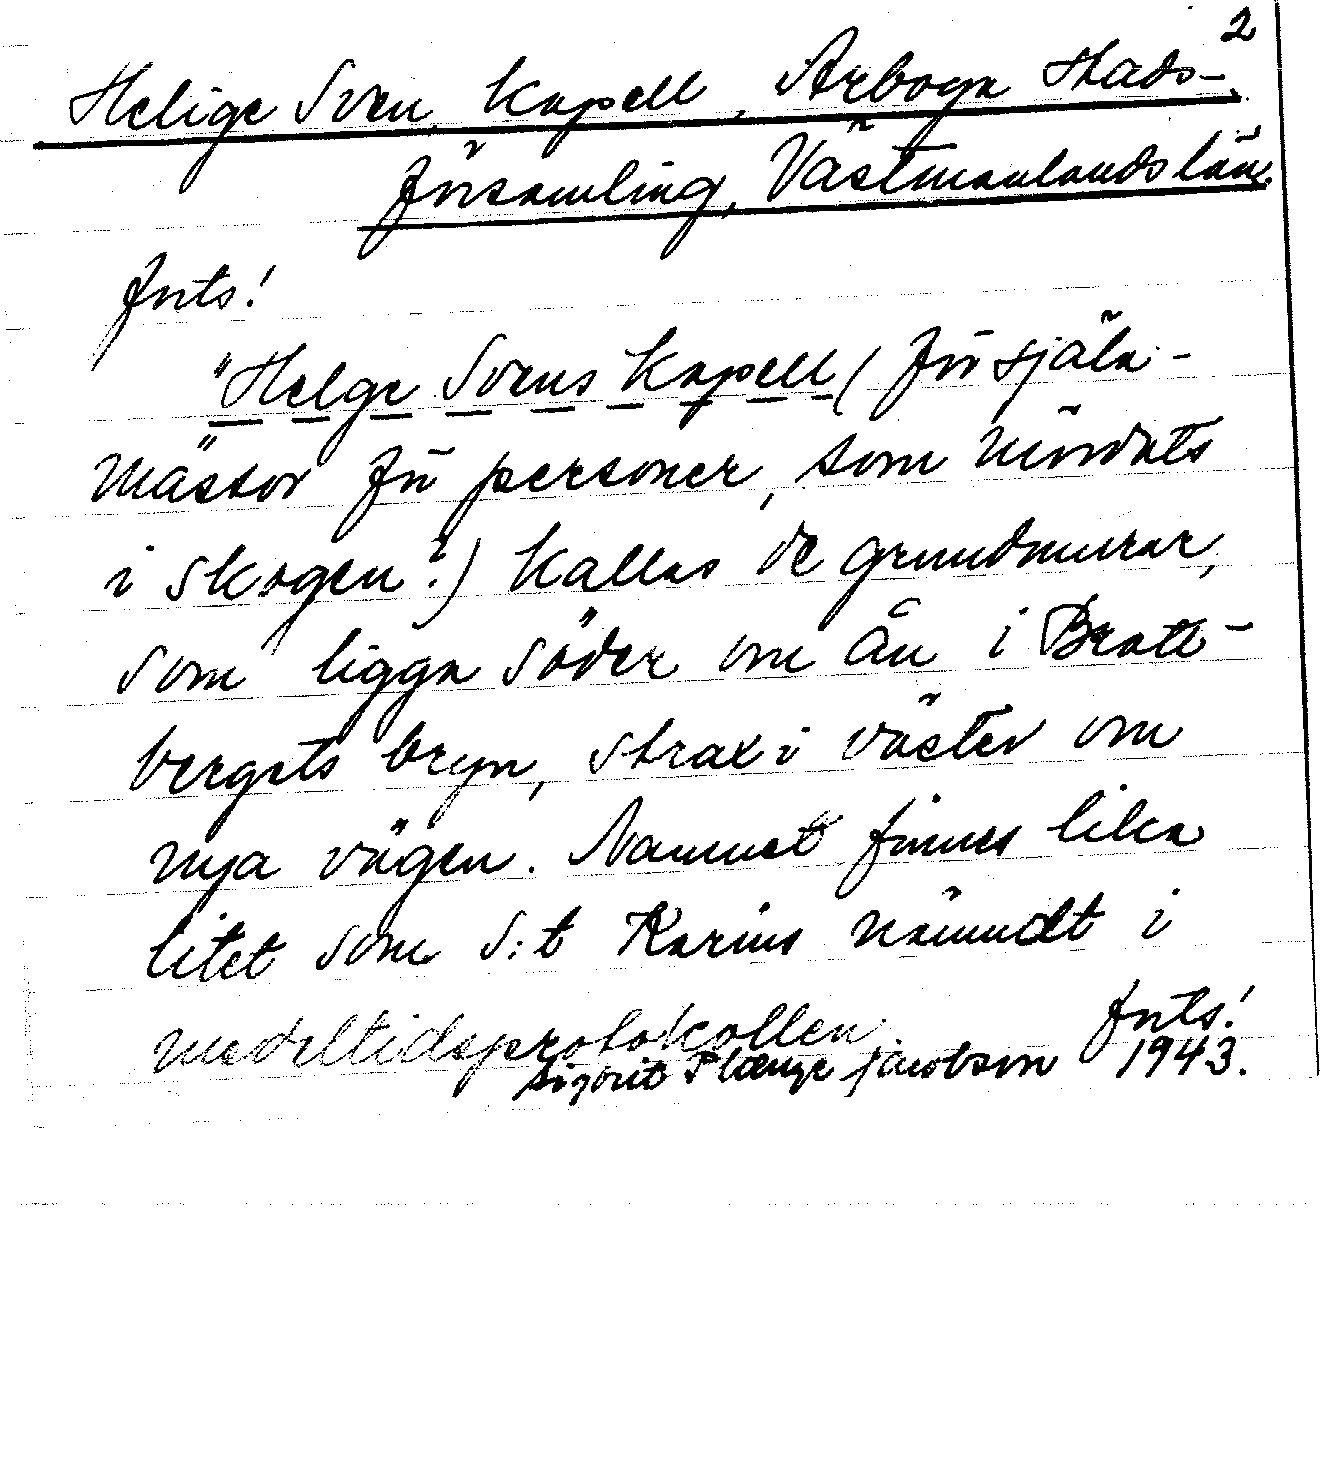 2
Helige Sven Kapell, Arboga Stads-
församling, Västmanlands län.
forts!
"Helge Svens Kapell (för själa-
mässor för personer, som mördats
i skogen?) kallas de grundmurar,
som ligga söder om ån i Bratt-
bergets bryn, strax i väster om
nya vägen. Namnet finnes lika
litet som S:t Karins nämndt i
medeltidsprotokollen forts!
Sigbrit Plænge Jacobson 1943.